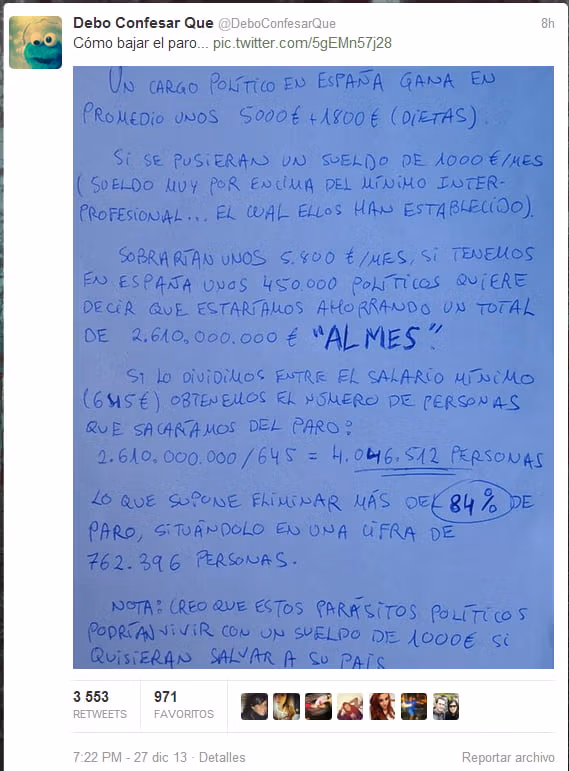 Debo Confesar Que @DeboConfesarQue 8h
Cómo bajar el paro... pic.twitter.com/5gEMn57j28
UN CARGO POLÍTICO EN ESPAÑA GANA EN
PROMEDIO UNOS 5000€ + 1800€ (DIETAS).
SI SE PUSIERAN UN SUELDO DE 1000€/MES
(SUELDO MUY POR ENCIMA DEL MÍNIMO INTER-
PROFESIONAL... EL CUAL ELLOS HAN ESTABLECIDO).
SOBRARÍAN UNOS 5.800 €/MES, SI TENEMOS
EN ESPAÑA UNOS 450.000 POLÍTICOS QUIERE
DECIR QUE ESTARÍAMOS AHORRANDO UN TOTAL
DE 2.610.000.000 € "AL MES".
SI LO DIVIDIMOS ENTRE EL SALARIO MÍNIMO
(645€) OBTENEMOS EL NÚMERO DE PERSONAS
QUE SACARÍAMOS DEL PARO:
2.610.000.000/645 = 4.046.512 PERSONAS
LO QUE SUPONE ELIMINAR MÁS DEL 84% DE
PARO, SITUÁNDOLO EN UNA CIFRA DE
762.396 PERSONAS.
NOTA: CREO QUE ESTOS PARÁSITOS POLÍTICOS
PODRÍAN VIVIR CON UN SUELDO DE 1000€ SI
QUISIERAN SALVAR A SU PAÍS
3 553 971
RETWEETS FAVORITOS
7:22 PM - 27 dic 13 · Detalles Reportar archivo